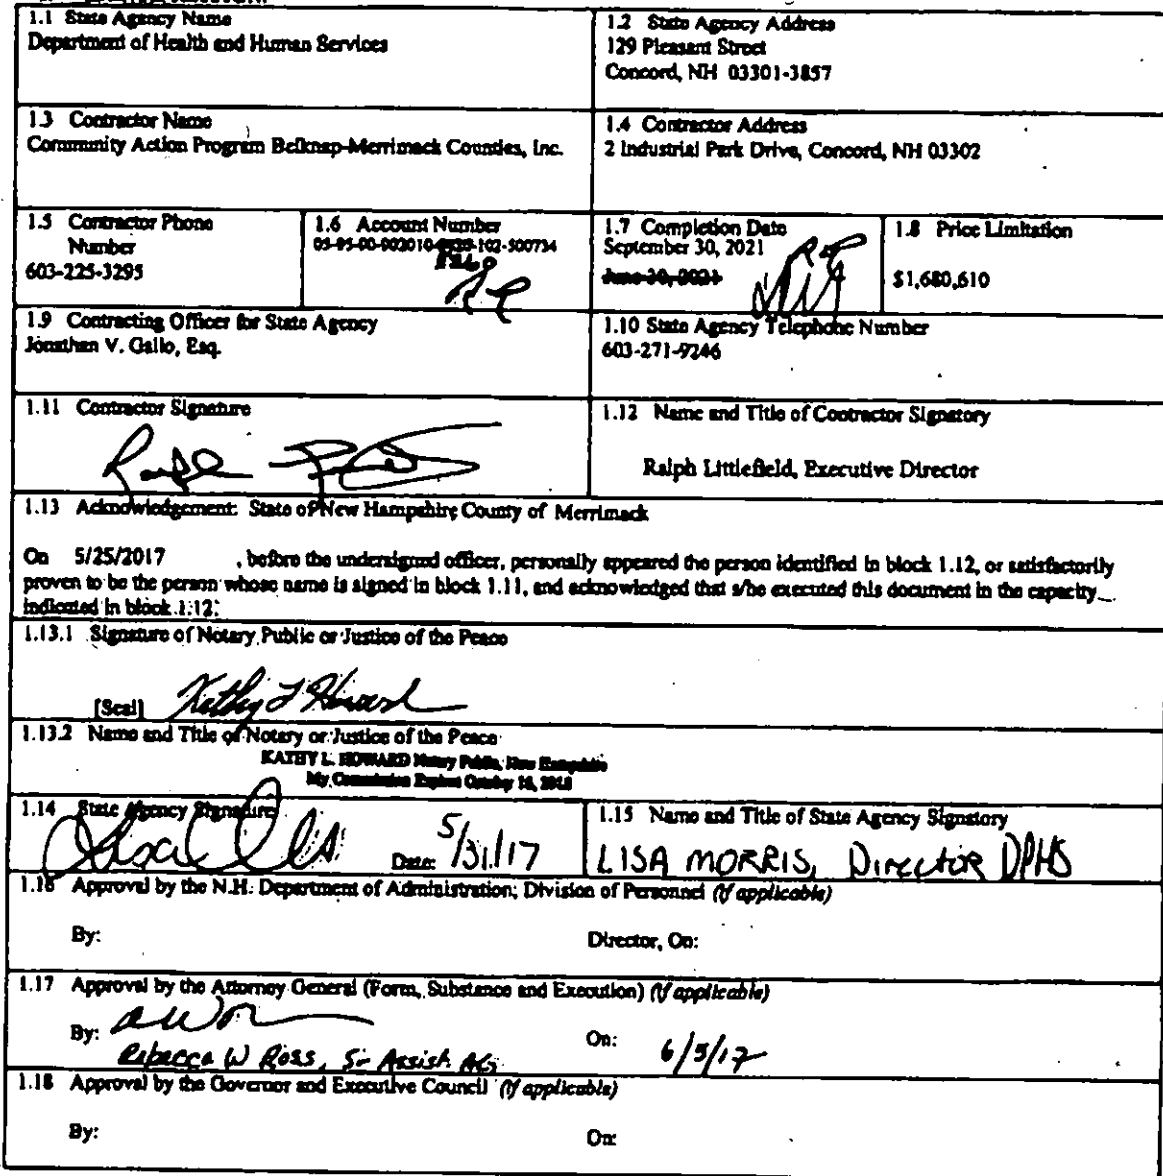 1.1 State Agency Name
Department of Health and Human Services
1.2 State Agency Address
129 Pleasant Street
Concord, NH 03301-3857
1.3 Contractor Name
Community Action Program Belknap-Merrimack Counties, Inc.
1.4 Contractor Address
2 Industrial Park Drive, Concord, NH 03302
1.5 Contractor Phone
Number
603-225-3295
1.6 Account Number
1.7 Completion Date
September 30, 2021
June 30, 2021
1.8 Price Limitation
$1,680,610
1.9 Contracting Officer for State Agency
Jonathan V. Gallo, Esq.
1.10 State Agency Telephone Number
603-271-9246
1.11 Contractor Signature
1.12 Name and Title of Contractor Signatory
Ralph Littlefield, Executive Director
1.13 Acknowledgement: State of New Hampshire County of Merrimack
On 5/25/2017 , before the undersigned officer, personally appeared the person identified in block 1.12, or satisfactorily
proven to be the person whose name is signed in block 1.11, and acknowledged that s/he executed this document in the capacity
indicated in block 1.12.
1.13.1 Signature of Notary Public or Justice of the Peace
[Seal] Kathy L Howard
1.13.2 Name and Title of Notary or Justice of the Peace
KATHY L. HOWARD Notary Public, New Hampshire
My Commission Expires October 16, 2018
1.14 State Agency Signature
Date: 5/31/17
1.15 Name and Title of State Agency Signatory
LISA MORRIS, Director DPHS
1.16 Approval by the N.H. Department of Administration, Division of Personnel (if applicable)
By: Director, On:
1.17 Approval by the Attorney General (Form, Substance and Execution) (if applicable)
By: On: 6/5/17
Rebecca W Ross, Sr Assist. AG
1.18 Approval by the Governor and Executive Council (if applicable)
By: On: